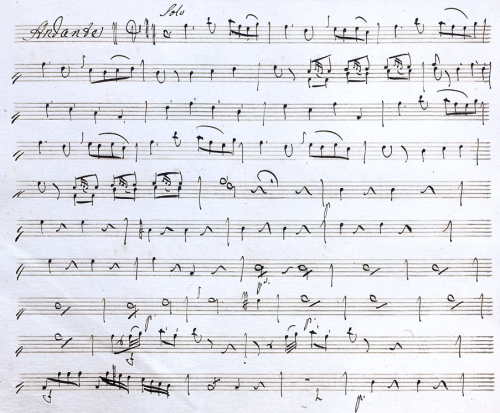 Solo
Andante
p
p.
p.
p.
f
f
p.